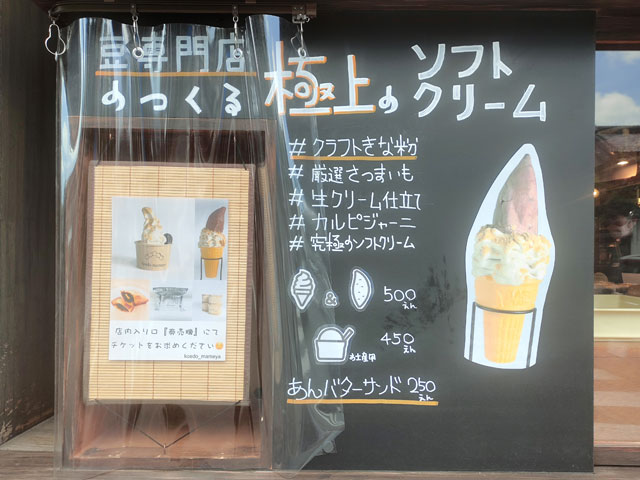 豆専門店
のつくる
極上の
ソフト
クリーム
#クラフトきな粉
#厳選さつまいも
#生クリーム仕立て
#カルピジャーニ
#究極のソフトクリーム
&
500
えん
450
えん
お土産用
あんバターサンド 250
えん
店内入り口『券売機』にて
チケットをお求めください
kuedo_mameya